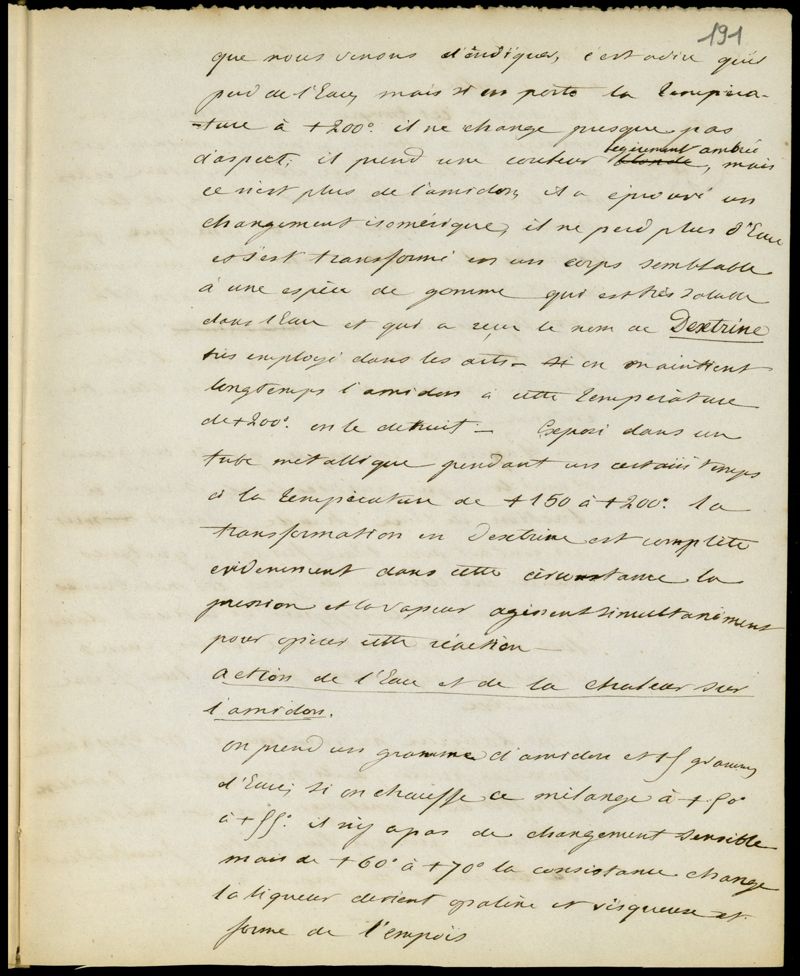 191
que nous venons d'indiquer, c'est a dire qu'il
perd de l'Eau, mais si on porte la tempéra-
-ture à +200° il ne change presque pas
d'aspect; il prend une couleur blonde légèrement ambrée, mais
ce n'est plus de l'amidon, il a éprouvé un
changement isomérique, il ne perd plus d'Eau
et s'est transformé en un corps semblable
à une espèce de gomme qui est très soluble
dans l'Eau et qui a reçu le nom de Dextrine
très employé dans les arts - si on maintient
longtemps l'amidon à cette température
de +200° on le détruit - Exposé dans un
tube métallique pendant un certain temps
à la température de +150 à +200° la
transformation en Dextrine est complète
evidemment dans cette circonstance la
pression et la vapeur agissent simultanément
pour opérer cette réaction -
action de l'Eau et de la chaleur sur
l'amidon.
on prend un gramme d'amidon et 15 grammes
d'Eau, si on chauffe ce mélange à +50°
à +55° il n'y a pas de changement sensible
mais de +60° à +70° la consistance change
la liqueur devient opaline et visqueuse et
forme de l'empois